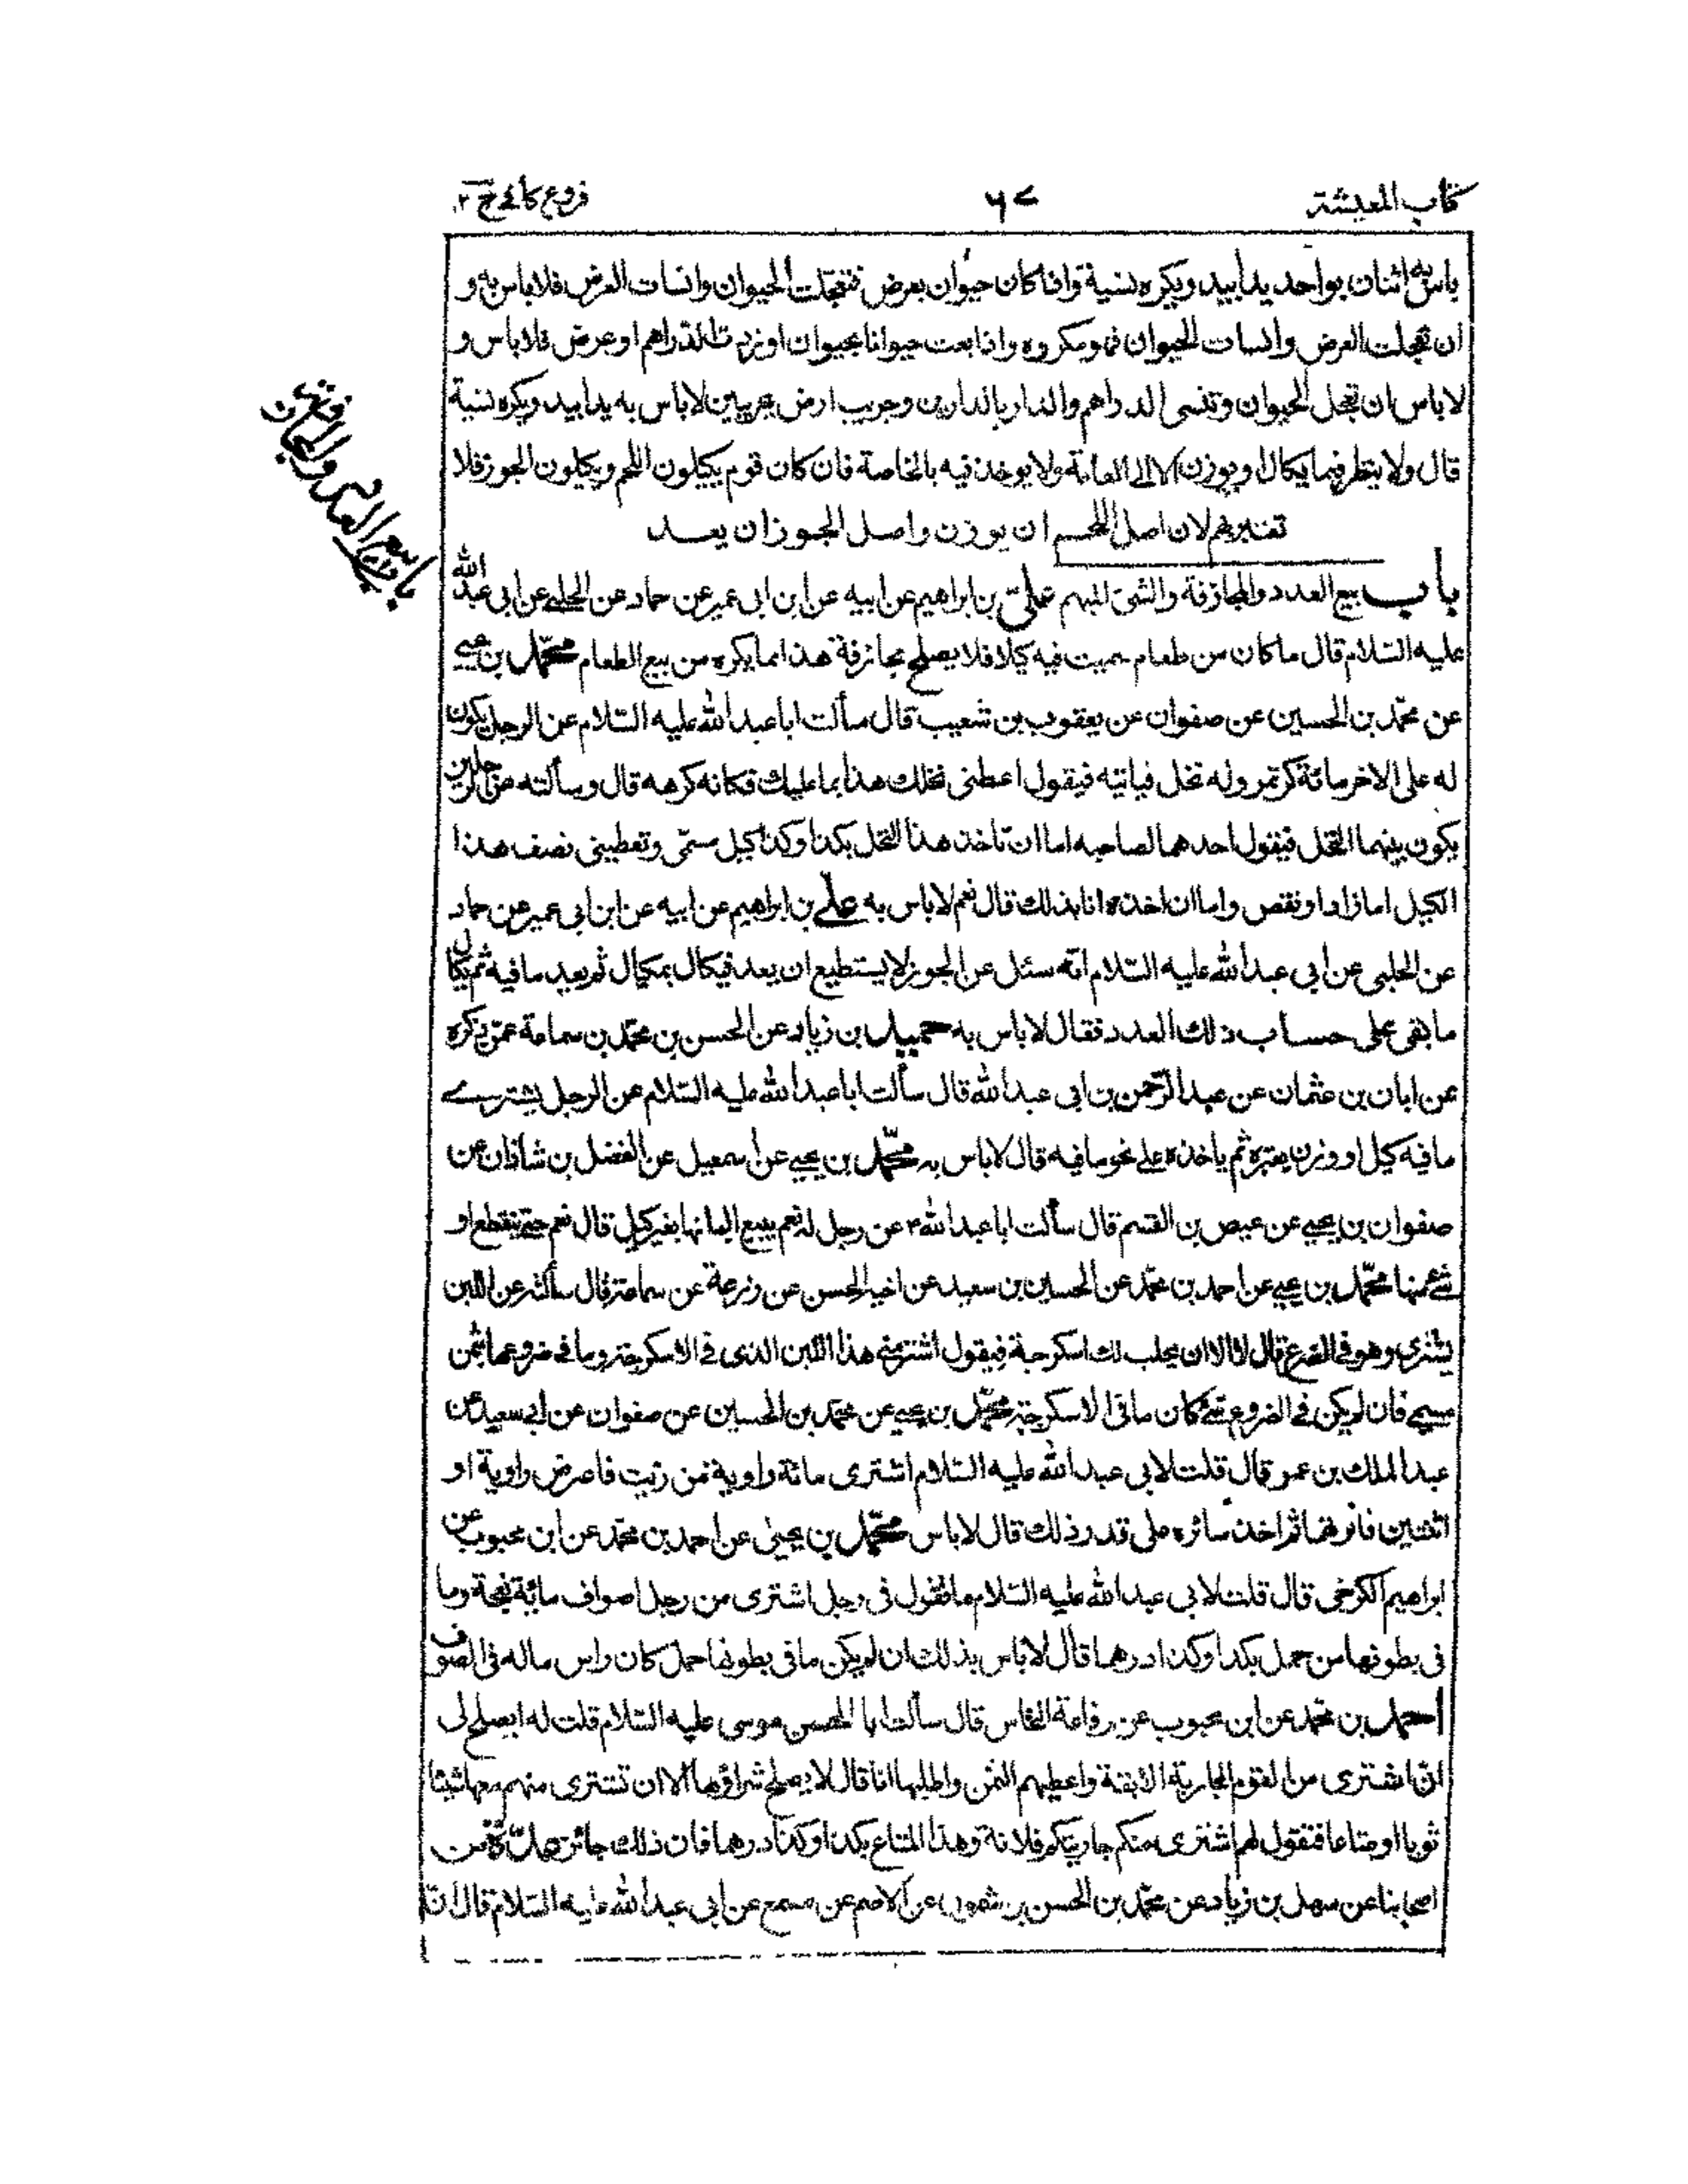 كتاب المعيشة ٦٧ فروع كافى ج ٢
باس به اثنان بواحد يدا بيد ويكره نسية واذا كان حيوان بعرض فتعجلت الحيوان وانسات العرض فلا باس به و
ان تعجلت العرض وانسات الحيوان فهو مكروه واذا بعت حيوانا بحيوان او زيادة الدراهم او عرض فلا باس و
لا باس ان تعجل الحيوان وتنسى الدراهم والدار بالدارين وجريب ارض بجريبين لا باس به يدا بيد ويكره نسية
قال ولا ينظر فيما يكال او يوزن الا الى العامة ولا يوخذ فيه بالخاصة فان كان قوم يكيلون اللحم ويكيلون الجوز فلا
تعتبر بهم لان اصل اللحم ان يوزن واصل الجوز ان يعد
باب بيع العدد والمجازفة والشئ المبهم على بن ابراهيم عن ابيه عن ابن ابى عمير عن حماد عن الحلبى عن ابى عبد الله
عليه السلام قال ما كان من طعام سميت فيه كيلا فلا يصلح مجازفة هذا مما يكره من بيع الطعام محمد بن يحيى
عن محمد بن الحسين عن صفوان عن يعقوب بن شعيب قال سألت ابا عبد الله عليه السلام عن الرجل يكون
له على الاخر مائة كر تمر وله نخل فياتيه فيقول اعطنى نخلك هذا بما عليك فكانه كرهه قال وسألته عن الرجلين
يكون بينهما النخل فيقول احدهما لصاحبه اما ان تاخذ هذا النخل بكذا وكذا كيل مسمى وتعطينى نصف هذا
الكيل اما زاد او نقص واما ان اخذه انا بذلك قال نعم لا باس به على بن ابراهيم عن ابيه عن ابن ابى عمير عن حماد
عن الحلبى عن ابى عبد الله عليه السلام انه سئل عن الجوز لا يستطيع ان يعد فيكال بمكيال ثم يعد ما فيه ثم يكال
ما بقى على حساب ذلك العدد فقال لا باس به حميد بن زياد عن الحسن بن محمد بن سماعة عمن ذكره
عن ابان بن عثمان عن عبد الرحمن بن ابى عبد الله قال سألت ابا عبد الله عليه السلام عن الرجل يشترى
ما فيه كيل او وزن يعتبره ثم ياخذه على نحو ما فيه قال لا باس به محمد بن يحيى عن اسمعيل عن الفضل بن شاذان عن
صفوان بن يحيى عن عيص بن القسم قال سألت ابا عبد الله ع عن رجل له نعم يبيع البانها بغير كيل قال نعم حتى ينقطع او
شئ منها محمد بن يحيى عن احمد بن محمد عن الحسين بن سعيد عن اخيه الحسن عن زرعة عن سماعة قال سألته عن اللبن
يشترى وهو فى الضرع قال لا الا ان يحلب لك اسكرجة فيقول اشتر منى هذا اللبن الذى فى الاسكرجة وما فى ضروعها بثمن
مسمى فان لم يكن فى الضروع شئ كان ما فى الاسكرجة محمد بن يحيى عن محمد بن الحسين عن صفوان عن ابى سعيد عن
عبد الملك بن عمرو قال قلت لابى عبد الله عليه السلام اشترى مائة راوية من زيت فاعرض راوية او
اثنتين فاتزنهما ثم اخذ سائره على قدر ذلك قال لا باس محمد بن يحيى عن احمد بن محمد عن ابن محبوب عن
ابراهيم الكرخى قال قلت لابى عبد الله عليه السلام ما تقول فى رجل اشترى من رجل اصواف مائة نعجة وما
فى بطونها من حمل بكذا وكذا درهما قال لا باس بذلك ان لم يكن ما فى بطونها حمل كان راس ماله فى الصوف
احمد بن محمد عن ابن محبوب عن رفاعة النخاس قال سألت ابا الحسن موسى عليه السلام قلت له ايصلح لى
ان اشترى من القوم الجارية الابقة واعطيهم الثمن واطلبها انا قال لا يصلح شراؤها الا ان تشترى منهم معها شيئا
ثوبا او متاعا فتقول لهم اشترى منكم جاريتكم فلانة وهذا المتاع بكذا وكذا درهما فان ذلك جائز عدة من
اصحابنا عن سهل بن زياد عن محمد بن الحسن بن شمون عن الاصم عن مسمع عن ابى عبد الله عليه السلام قال ان
باب بيع العدد والمجازفة